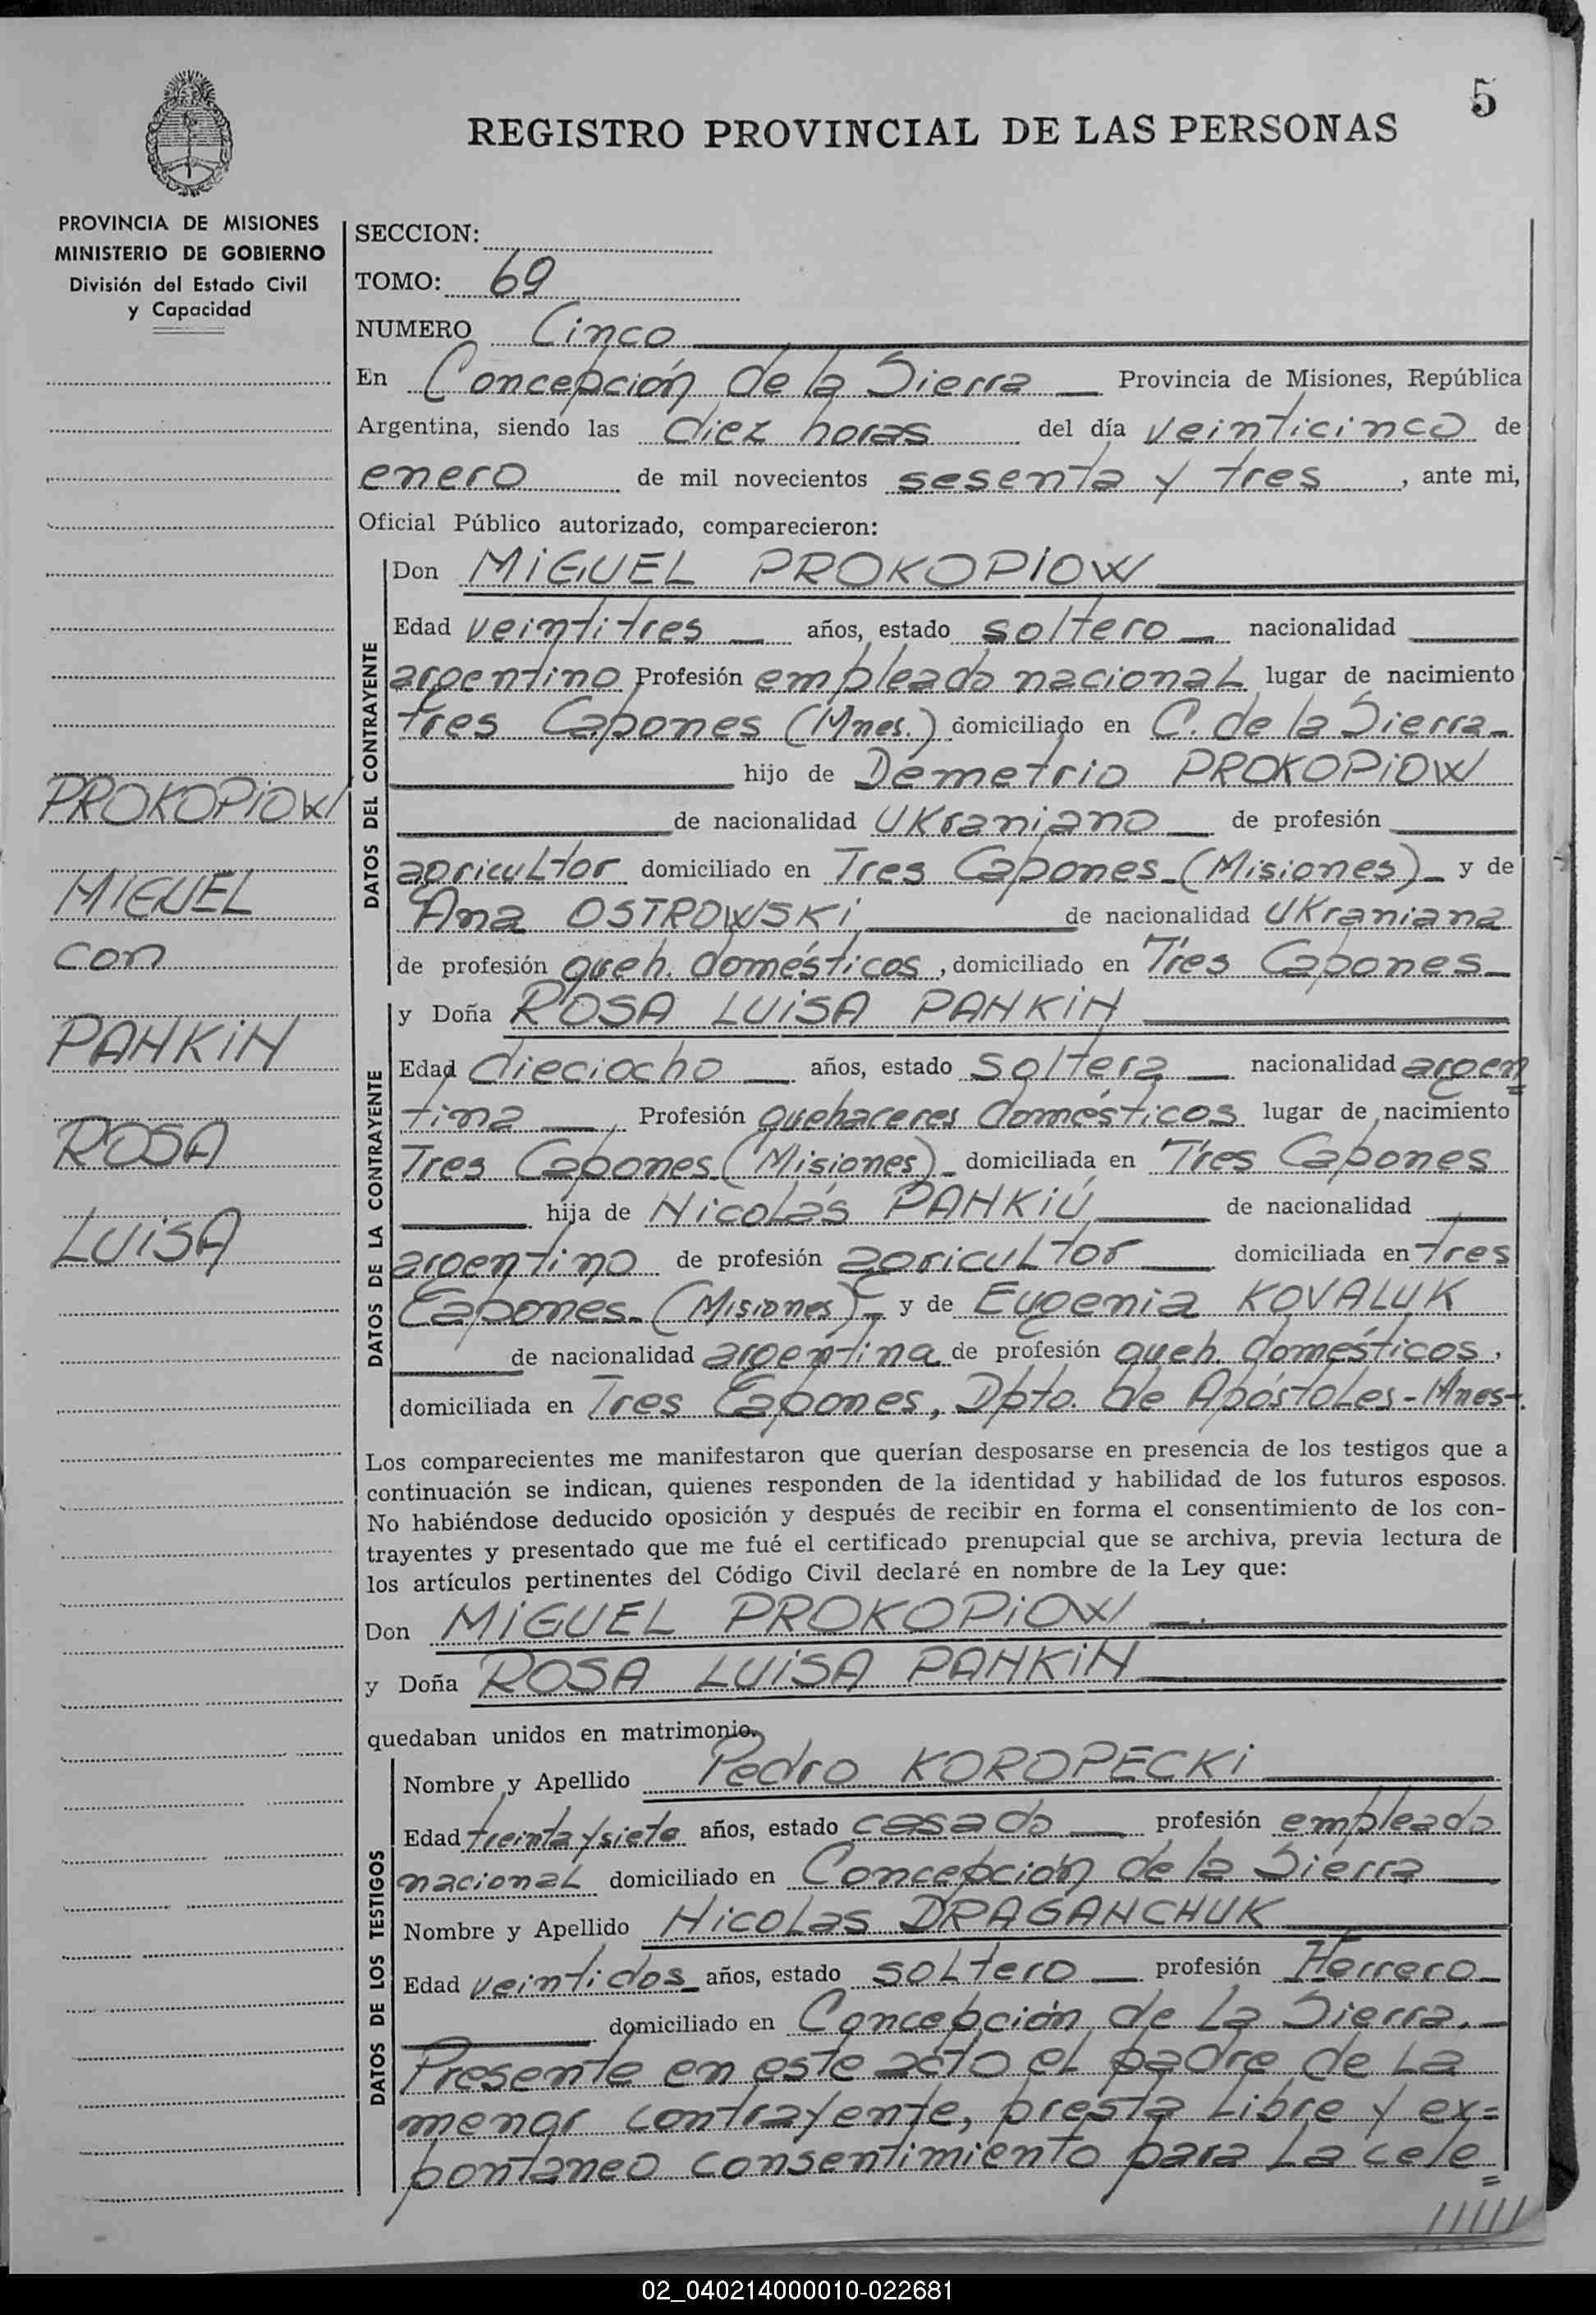 5
REGISTRO PROVINCIAL DE LAS PERSONAS
PROVINCIA DE MISIONES
MINISTERIO DE GOBIERNO
División del Estado Civil
y Capacidad
PROKOPIOW
MIGUEL
con
PANKIN
ROSA
LUISA
SECCION:
TOMO: 69
NUMERO Cinco
En Concepción de la Sierra Provincia de Misiones, República
Argentina, siendo las diez horas del día veinticinco de
enero de mil novecientos sesenta y tres, ante mi,
Oficial Público autorizado, comparecieron:
DATOS DEL CONTRAYENTE
Don MIGUEL PROKOPIOW
Edad veintitres años, estado soltero nacionalidad
argentino Profesión empleado nacional lugar de nacimiento
Tres Capones (Mnes.) domiciliado en C. de la Sierra
hijo de Demetrio PROKOPIOW
de nacionalidad Ukraniano de profesión
agricultor domiciliado en Tres Capones (Misiones) y de
Ana OSTROWSKI de nacionalidad Ukraniana
de profesión queh. domésticos, domiciliado en Tres Capones
DATOS DE LA CONTRAYENTE
y Doña ROSA LUISA PANKIN
Edad dieciocho años, estado soltera nacionalidad argen=
tina Profesión quehaceres domésticos lugar de nacimiento
Tres Capones (Misiones) domiciliada en Tres Capones
hija de Nicolás PANKIU de nacionalidad
argentino de profesión agricultor domiciliada en Tres
Capones (Misiones) y de Eugenia KOVALUK
de nacionalidad argentina de profesión queh. domésticos,
domiciliada en Tres Capones, Dpto. de Apóstoles-Mnes-.
Los comparecientes me manifestaron que querían desposarse en presencia de los testigos que a
continuación se indican, quienes responden de la identidad y habilidad de los futuros esposos.
No habiéndose deducido oposición y después de recibir en forma el consentimiento de los con-
trayentes y presentado que me fué el certificado prenupcial que se archiva, previa lectura de
los artículos pertinentes del Código Civil declaré en nombre de la Ley que:
Don MIGUEL PROKOPIOW
y Doña ROSA LUISA PANKIN
quedaban unidos en matrimonio.
DATOS DE LOS TESTIGOS
Nombre y Apellido Pedro KOROPECKI
Edad treinta y siete años, estado casado profesión empleado
nacional domiciliado en Concepción de la Sierra
Nombre y Apellido Nicolas DRAGANCHUK
Edad veintidos años, estado soltero profesión Herrero
domiciliado en Concepción de La Sierra.
Presente en este acto el padre de La
menor contrayente, presta Libre y ex=
pontaneo consentimiento para La cele=
02_040214000010-022681